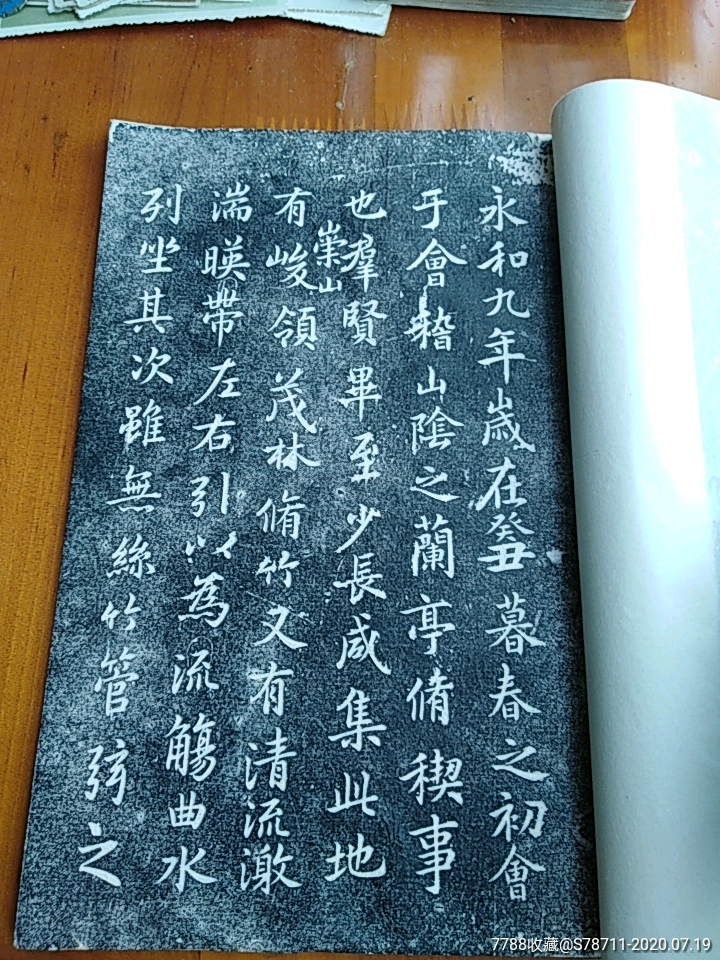 永和九年歲在癸丑暮春之初會
于會稽山陰之蘭亭脩稧事
也羣賢畢至少長咸集此地
有崇山峻領茂林脩竹又有清流激
湍暎帶左右引以為流觴曲水
列坐其次雖無絲竹管弦之
7788收藏@S78711-2020.07.19